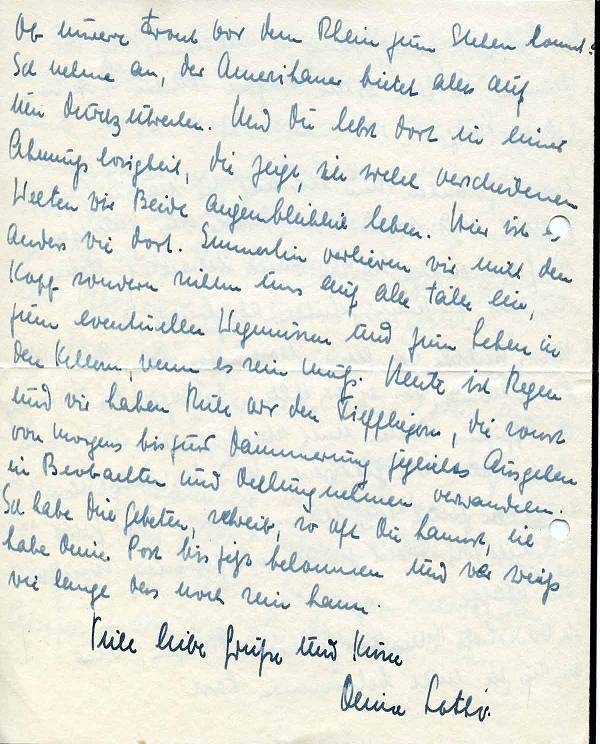 Ob unsere Front vor dem Rhein zum Stehen kommt?
Ich nehme an, der Amerikaner bietet alles auf
um durchzustoßen. Und Du lebst dort in einer
Ahnungslosigkeit, die zeigt, in welch verschiedenen
Welten wir Beide augenblicklich leben. Hier ist es
anders wie dort. Immerhin verlieren wir nicht den
Kopf sondern richten uns auf alle Fälle ein,
zum eventuellen Wegmüssen und zum Leben in
den Kellern, wenn es sein muß. Heute ist Regen
und wir haben Ruhe vor den Tieffliegern, die sonst
von morgens bis zur Dämmerung jegliches Ausgehen
in Beobachten und Deckungnehmen verwandeln.
Ich habe Dich gebeten, schreib, so oft Du kannst, ich
habe Deine Post bis jetzt bekommen und wer weiß
wie lange das noch sein kann.
Viele liebe Grüße und Küsse
Deine